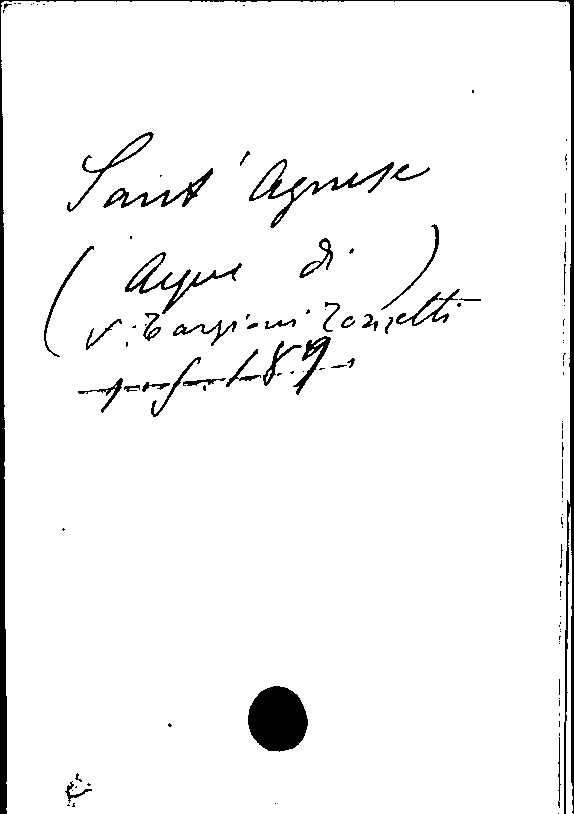 Sant' Agnese
(Acque di)
V. Targioni Tozzetti